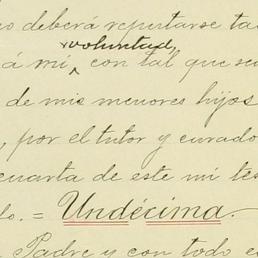 no deberá reputarse ta
voluntad,
á mi con tal que sea
de mis menores hijos
, por el tutor y curado
cuarta de este mi tes
do. = Undécima.
Padre y con todo e